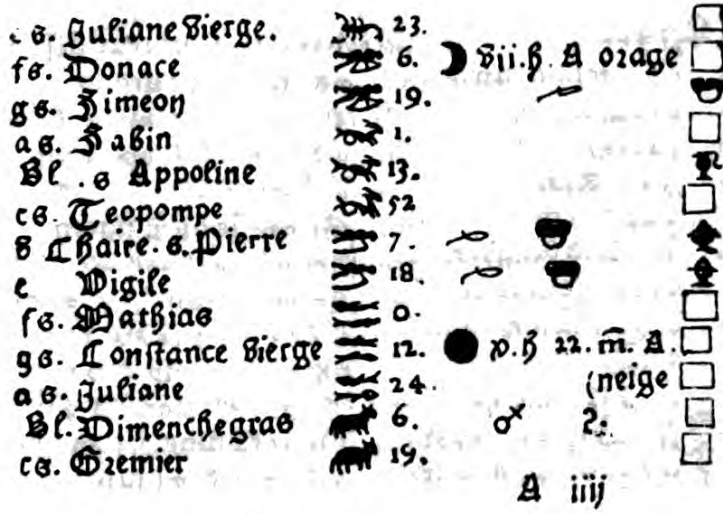 e s. Juliane vierge. 23.
f s. Donace 6. vii. h. A orage
g s. Simeon 19.
a s. Sabin 1.
Bl . s Appoline 13.
c s. Teopompe 52
d Chaire. s. Pierre 7.
e Vigile 18.
f s. Mathias 0.
g s. Constance vierge 12. x. h 22. m. A.
a s. Juliane 24. (neige
Bl. Dimenchegras 6. 2.
c s. Gremier 19.
A iiij